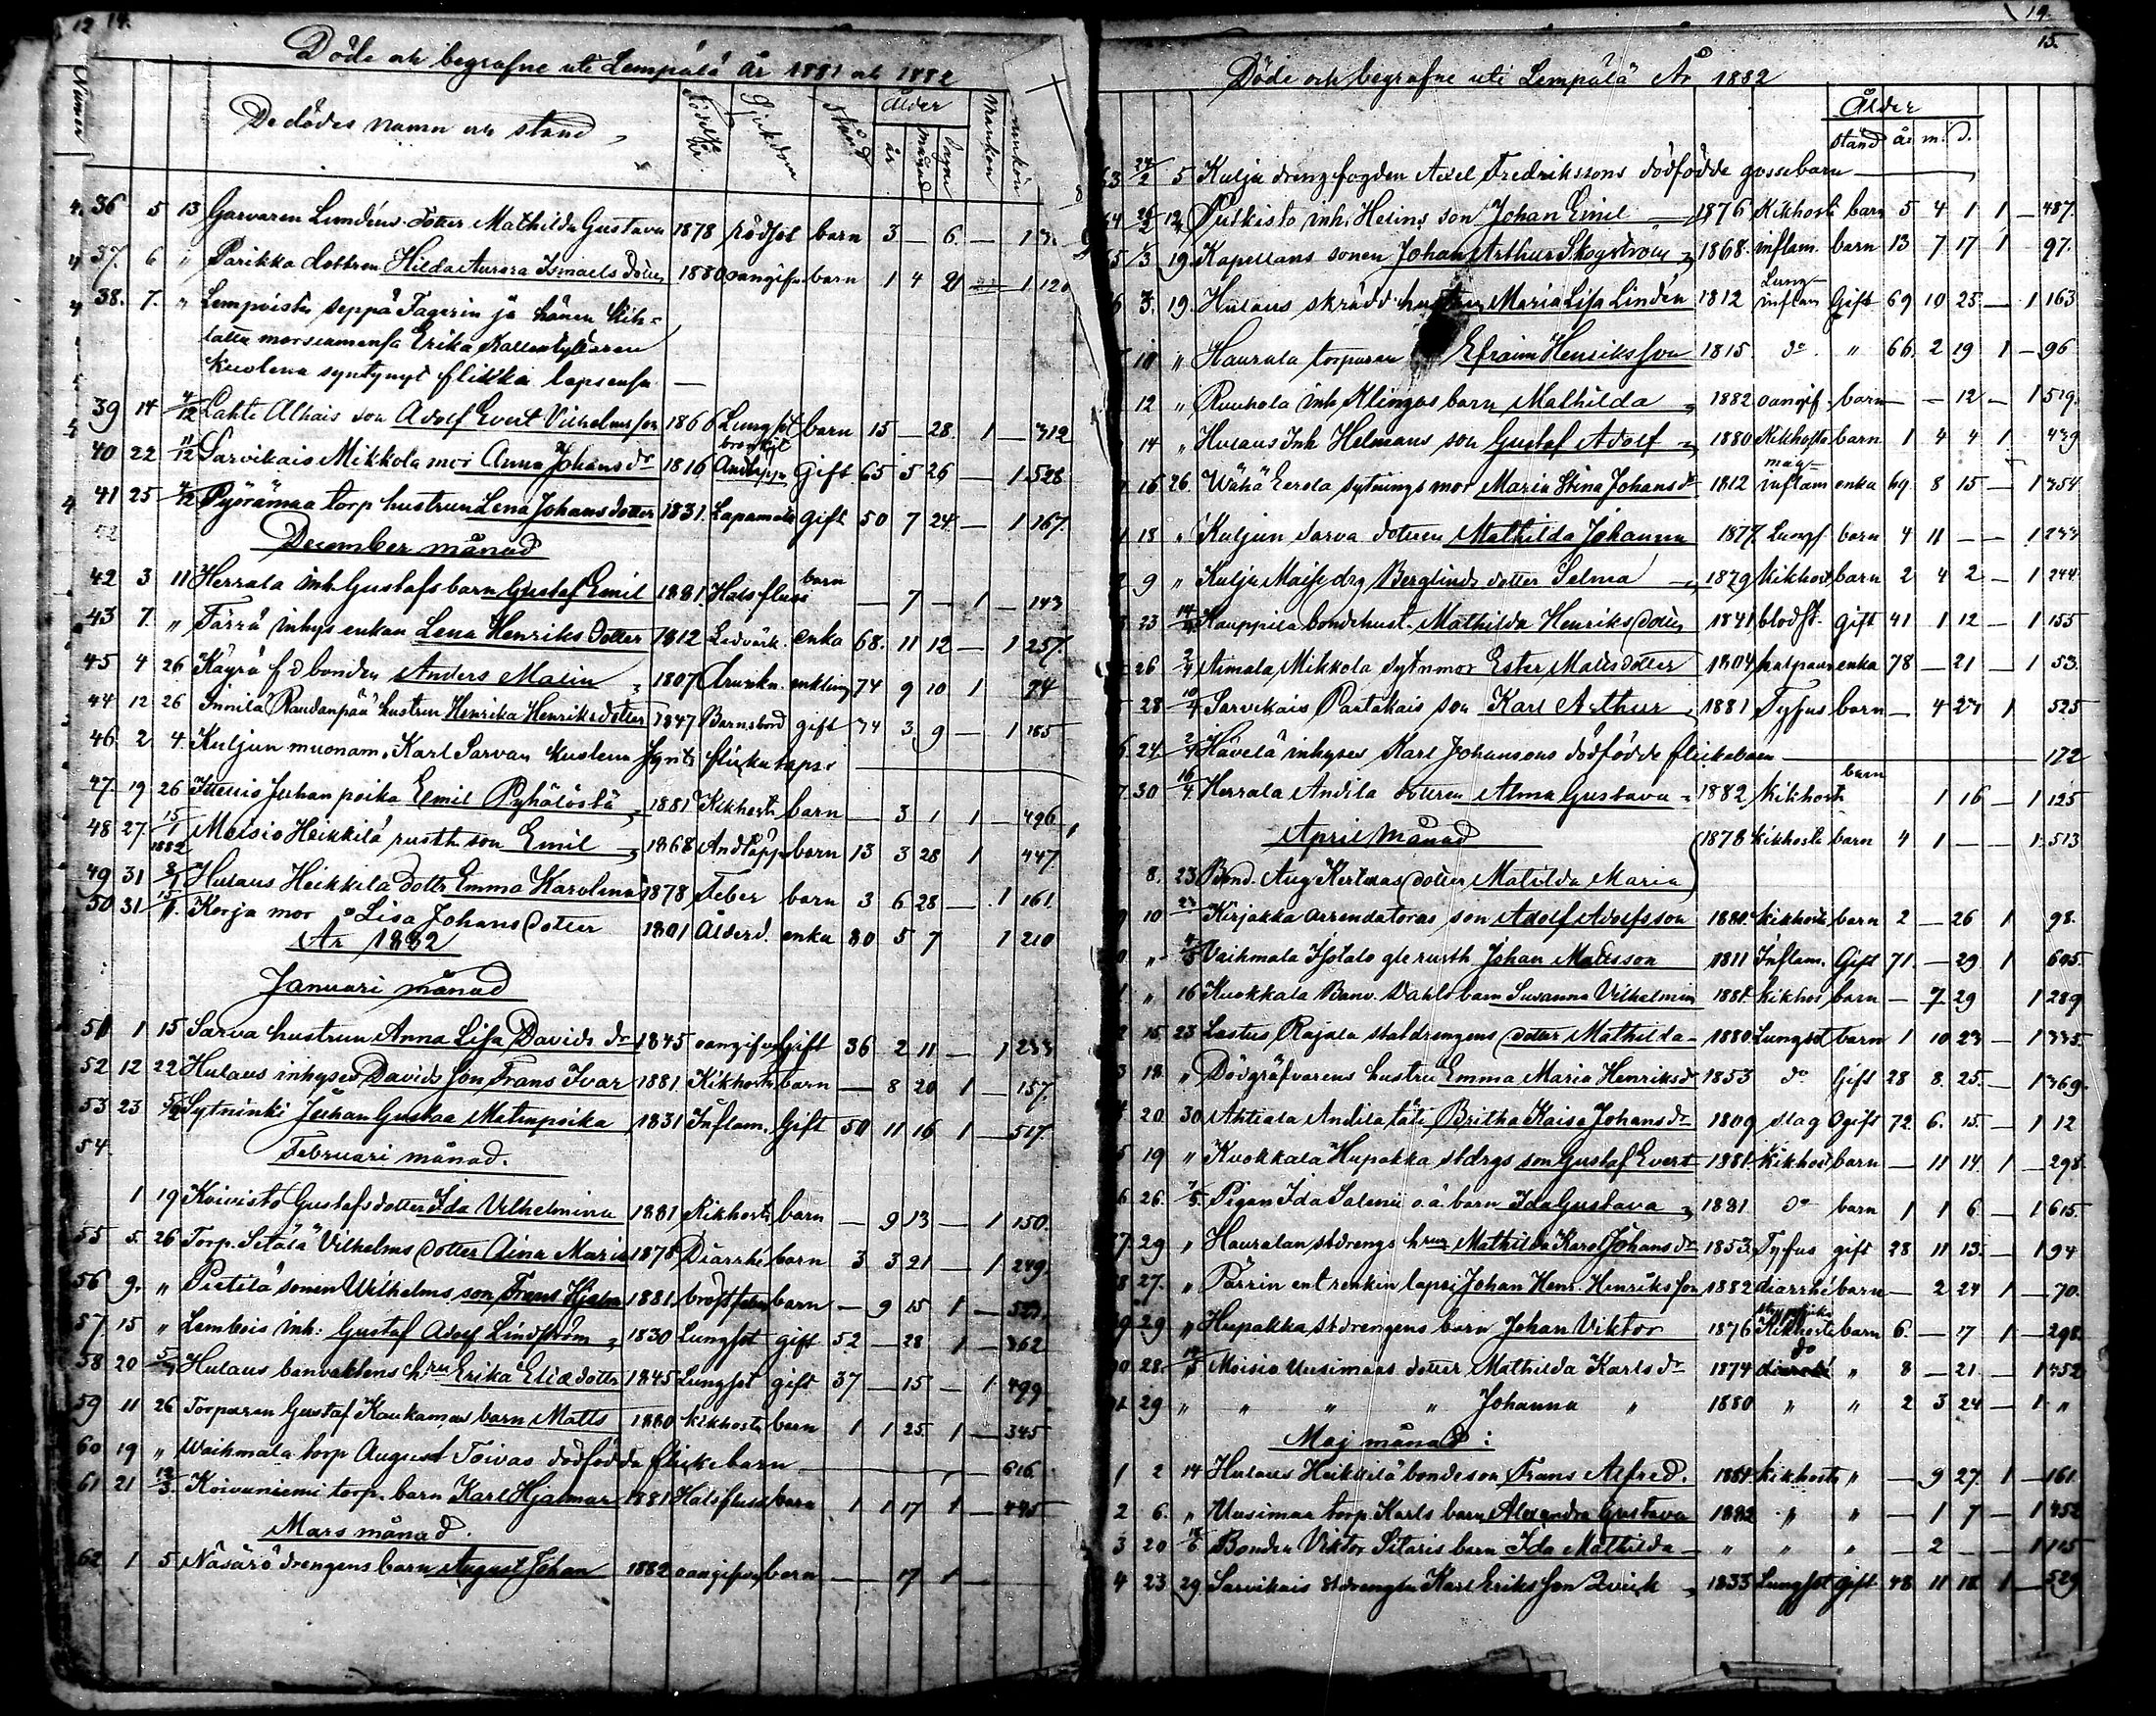 12 14.
Döde och begrafne uti Lempälä År 1881 och 1882
Numer
De dödes namn och stånd
Födelse år.
Sjukdom
Stånd
Ålder
år
månad
dagar
Mankön
36 5 13 Garvaren Lundéns dotter Mathilda Gustava 1878 Rödsot barn 3 — 6 — 1
37. 6 " Parikka dottren Hilda Aurora Ismaels dotter 1880 oangifn barn 1 4 21 — 1 120
38. 7. " Lempoisten seppä Fagerin ja hänen kih-
lattu morsiamensa Erika Kallentyttären
kuolena syntynyt flikka lapsensa —
39 14 4/12 Lahti Alhais son Adolf Evert Vilhelmsson 1866 Lungsot barn 15 — 28 1 — 312
40 22 11/12 Sarvikais Mikkola mor Anna Johans dr 1816 Andtäppa Gift 65 5 26 — 1 528
41 25 4/12 Pyörämaa torp hustrun Lena Johansdotter 1831. gift 50 7 24 — 1 167.
December månad
42 3 11 Herrala inh. Gustafs barn Gustaf Emil 1881. Halsfluss barn — 7 — 1 — 143
43 7. " Tärrä inhys enkan Lena Henriks dotter 1812 Ledvärk. enka 68. 11 12 — 1 257.
45 4 26 Käyrä f d bonden Anders Malin 1807 enkling 74 9 10 1 74
44 12 26 Innilä Raudanpää hustrun Henrika Henriksdotter 1847 Barnsbörd gift 34 3 9 — 1 185
46 2 4. Kuljun muonam. Karl Sarvan kuolena synt. flikka laps.
47 19 26 Juhan poika Emil Pyhälöstä 1881 Kikhosta barn — 3 1 1 — 496
48 27. 15/1 1882 Moisio Heikkilä rusth. son Emil 1868 Andtäppa barn 13 3 28 1 447.
49 31 Hulaus Heikkilä dottr Emma Karolina 1878 Feber barn 3 6 28 — 1 161.
50 31 Korja mor Lisa Johans dotter 1801 Ålderd. enka 80 5 7 1 210
År 1882
Januari månad
51 1 15 Sarva hustrun Anna Lisa Davids dr 1845 oangifv Gift 36 2 11 — 1 233
52 12 22 Hulaus inhyses Davids son Frans Ivar 1881. Kikhosta barn — 8 20 1 — 157.
53 23 5/2 Sytninki Juhan Gustaa Matinpoika 1831 Inflam. Gift 50 11 16 1 — 517.
54.
Februari månad.
1 19 Koivisto Gustafs dotter Ida Vilhelmina 1881 Kikhosta barn — 9 13 — 1 150.
55 5. 26 Torp. Setälä Vilhelms dotter Aina Maria 1878 Diarrhé barn 3 3 21 — 1 249.
56 9. " Pietilä sonen Wilhelms son Frans Hjalm 1881. bröstfeber barn — 9 15 1 — 523.
57 15 " Lembois inh: Gustaf Adolf Lindström 1830 Lungsot gift 52 — 28 1 — 362
58 20 Hulaus banvaktens hru Erika Eliædotter 1845 Lungsot gift 37 — 15 — 1 499
59 11 26 Torparen Gustaf Kaukamas barn Matts 1880 kikhosta barn 1 1 25. 1 — 345
60 19 " Waihmala torp August Toivas dödfödda flickebarn 616
61 21 12/3. Koivuniemi torp. barn Karl Hjalmar 1881 Halsfluss barn 1 1 17 1 — 495
Mars månad.
62 1 5 Näsärö drengens barn August Johan 1882 oangifven barn — — 17 1 —
14.
15.
Döde och begrafne uti Lempälä År 1882
Ålder
stånd år m. d.
63 24/2 5 Kulju drengfogden Axel Fredrikssons dödfödde gossebarn
64 12 Putkisto inh. Heins son Johan Emil 1876 Kikhosta barn 5 4 1 1 — 487.
65 1/3 19. Kapellans sonen Johan Arthur Skogström 1868. inflam. barn 13 7 17 1 97.
6 3. 19. Hulaus skrädd hustru Maria Lisa Lindén 1812 Lung-inflam Gift 69 10 25 — 1 163
10 " Haurala torparen Efraim Henriksson 1815 do " 66. 2 19 1 — 96
12 " Ruuhola inh Klingas barn Mathilda 1882 oangif barn — — 12 — 1 519.
14 " Hulaus Inh Helmans son Gustaf Adolf 1880 Kikhosta barn 1 4 4 1 439
16 26. Wähä Eerola sytnings mor Maria Stina Johans dr 1812 mag-inflam enka 69 8 15 — 1 354
18 " Kuljun Sarva dotteren Mathilda Johanna 1877. Lungs. barn 4 11 — — 1 233
9 " Kulju Maisio drg Berglinds dotter Selma 1879 Kikhost barn 2 4 2 — 1 244
23 Hauppila bondehust. Mathilda Henriks dotter 1841 blodst. gift 41 1 12 — 1 155
26 2/4 Aimala Mikkola sytnmor Ester Mattsdotter 1804 enka 78 — 21 — 1 53.
28 10/4 Sarvikais Partakais son Karl Arthur 1881 Tyfus barn — 4 27 1 525
6. 24. 2/4 Hävelä inhyses Karl Johansons dödfödde flickebarn 172
7. 30 16/4. Herrala Andila dotteren Alma Gustava 1882 kikhosta barn 1 16 — 1 125
April månad
8. 23 Bond. Aug Kertuas dotter Matilda Maria 1878 kikhosta barn 4 1 — — 1 513
9 10 23 Kirjakka arrendatoras son Adolf Adolfsson 1880. kikhosta barn 2 — 26 1 98.
" Vaihmala Isotalo gle rusth. Johan Mattsson 1811 Inflam. Gift 71. — 29 1 605.
1 " 16 Kuokkala Banv. Dahls barn Susanna Vilhelmin 1881. kikhos barn — 7 29 1 289
2 15 23 Lastus Rajala staldrengens dotter Mathilda 1880 Lungsot barn 1 10 23 — 1 335.
3 18 " Dödgräfvarens hustru Emma Maria Henriksdr 1853 do Gift 28 8. 25. — 1 369.
4 20 30 Ahtiala Andila täti Britha Kaisa Johans dr 1809 slag Ogift 72 6. 15. — 1 12
5 19 " Kuokkala Hupakka stdrgs son Gustaf Evert 1881. kikhost barn — 11 14 1 — 298.
6 26. 7/5. Pigan Ida Salenii o.ä. barn Ida Gustava 1881 do barn 1 1 6 — 1 615.
7. 29 " Hauralan stdrengs hru Mathilda Karol Johans dr 1853. Tyfus gift 28 11 13. — 1 94
8 27. " Pärrin ent renkin lapsi Johan Henr. Henriksson 1882 diarrhé barn — 2 24 1 — 70.
9 29 " Hupakka stdrengens barn Johan Viktor 1876 Kikhosta barn 6. — 17 1 — 298.
90 28. 14/5 Moisio Uusimaas dotter Mathilda Karls dr 1874 do " 8 — 21 — 1 352
91. 29 " " " " Johanna " 1880 " " 2 3 24 — 1 "
Maj månad:
1 2 14 Hulaus Heikkilä bondeson Frans Alfred. 1881. kikhosta " — 9 27. 1 — 161.
2 6. " Uusimaa torp. Karls barn Alexandra Gustava 1882 " " — 1 7 — 1 452
3 20 18/6 Bonden Viktor Sitaris barn Ida Mathilda " " " — 2 — — 1 115
4 23 29 Sarvikais stdrengen Karl Eriksson Qvick 1833 Lungsot gift 48 11 18 1 — 529